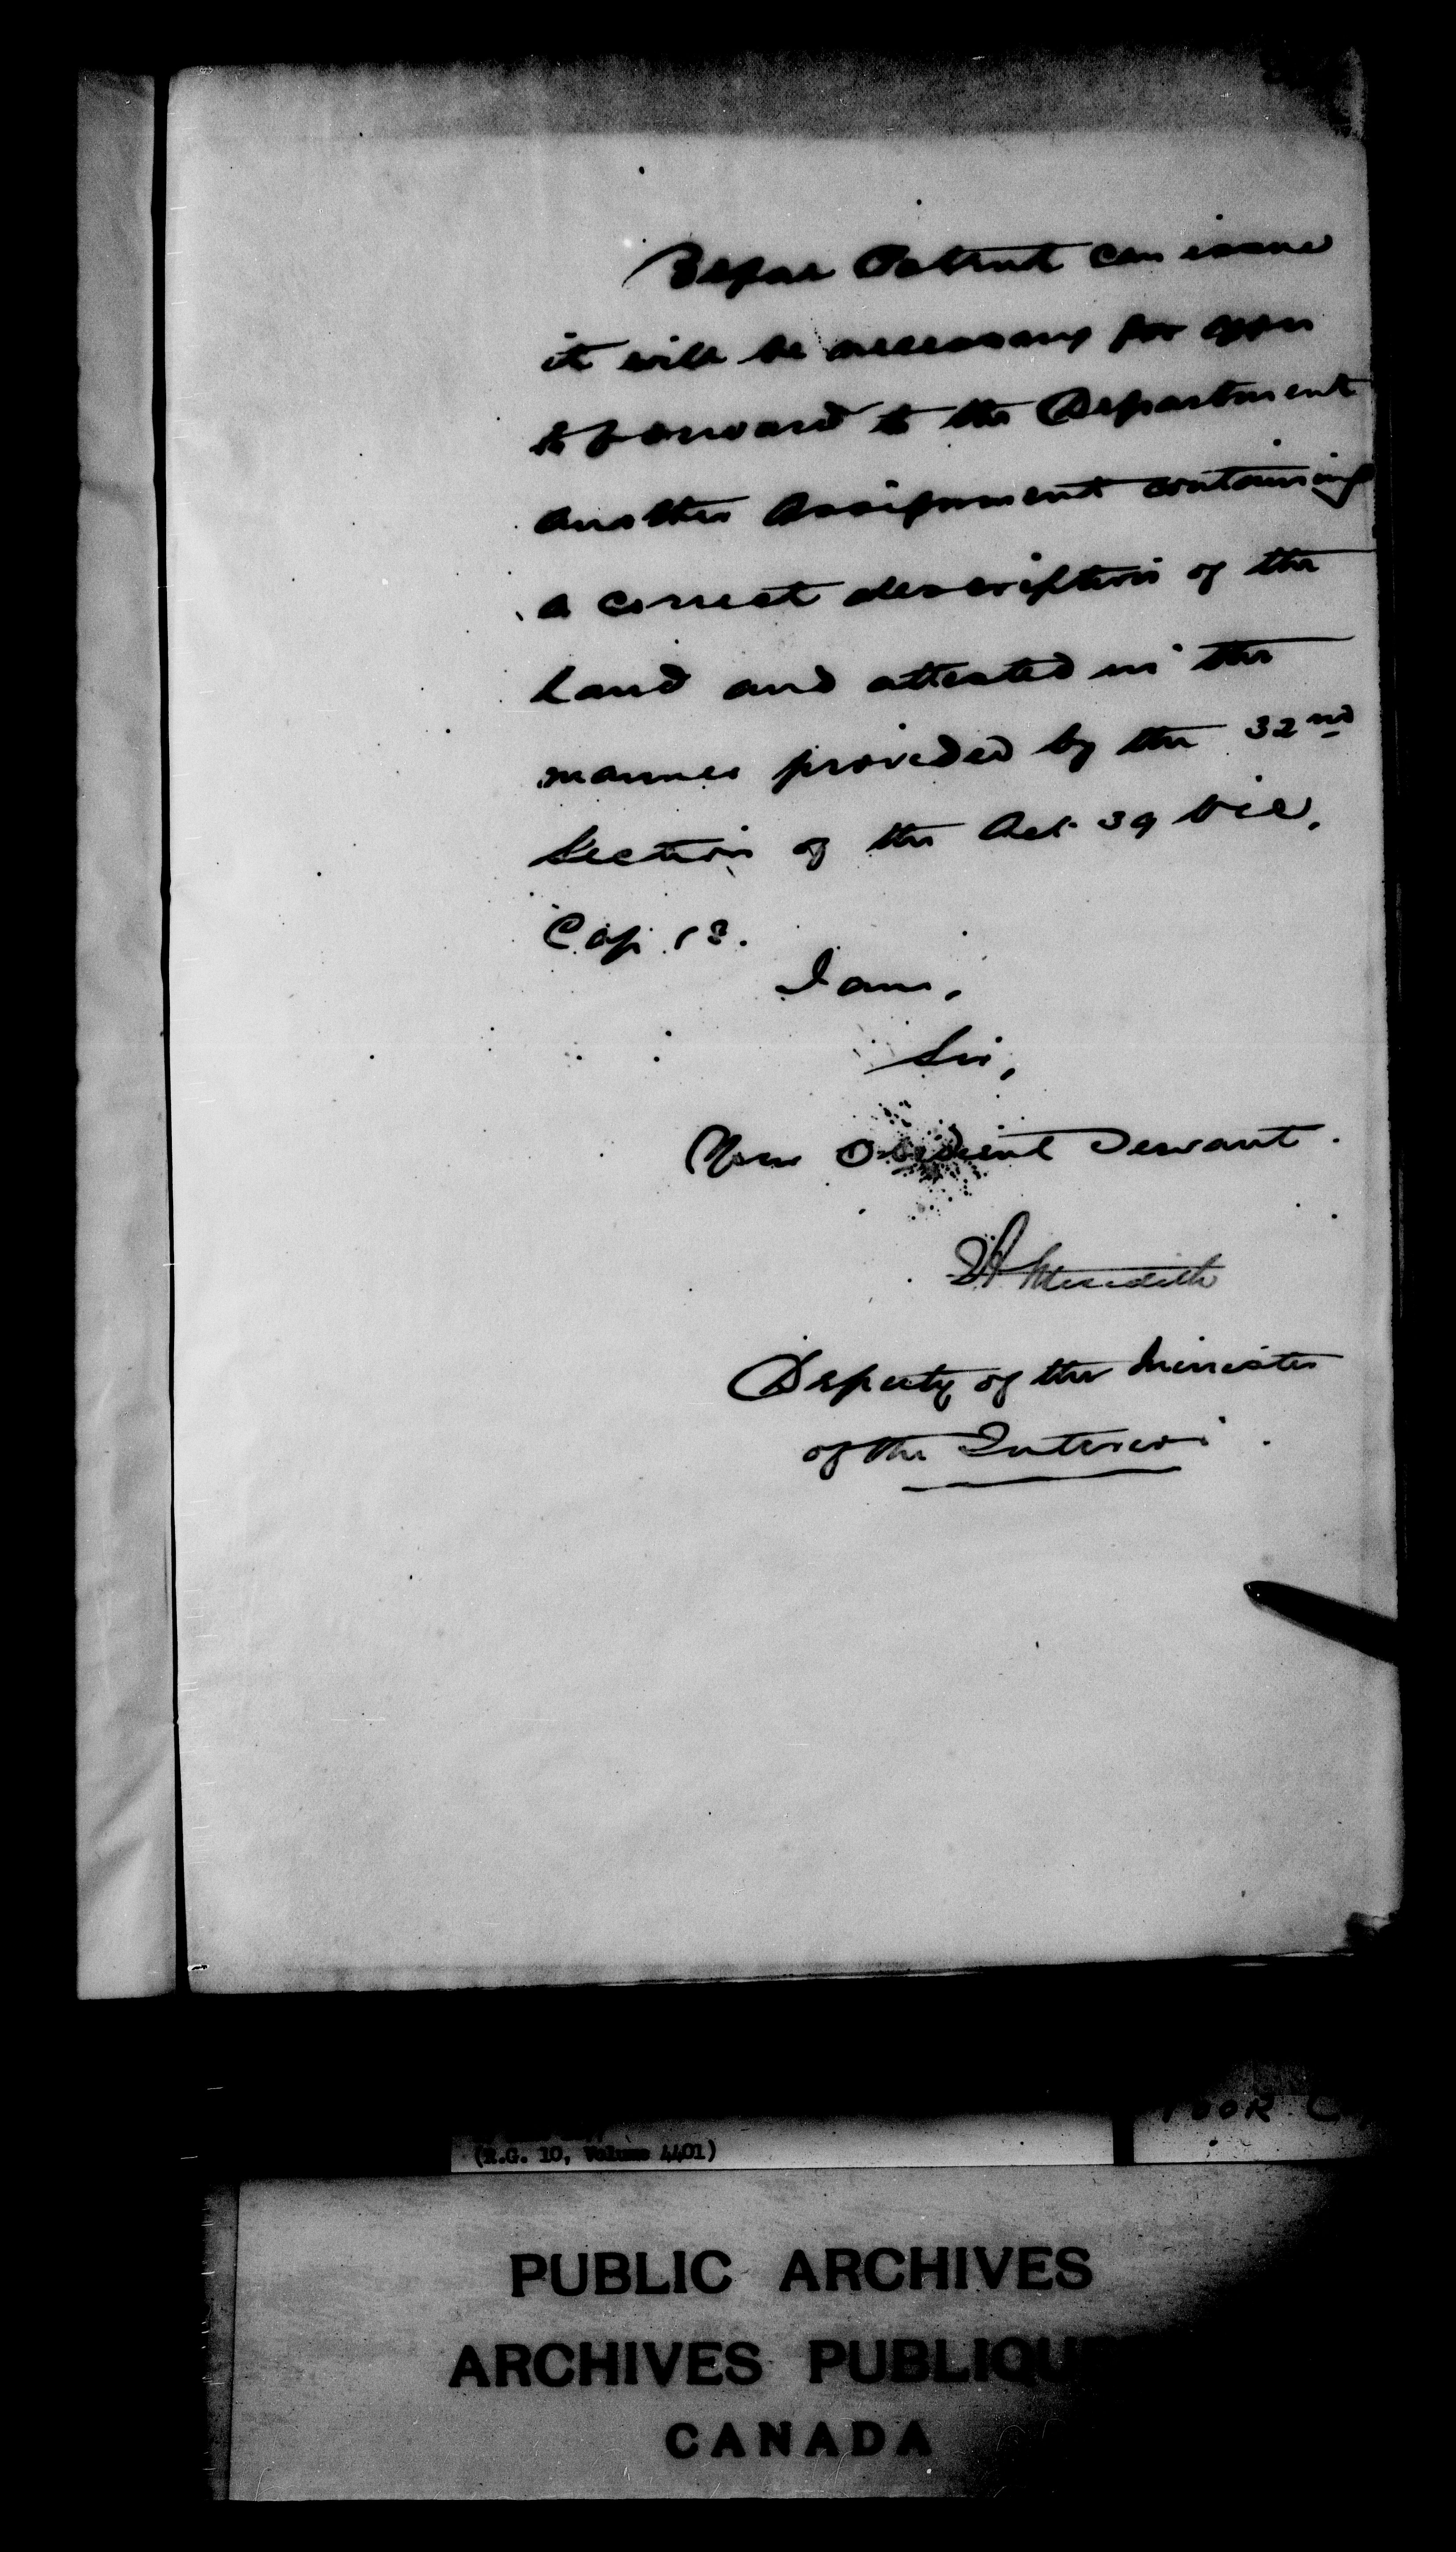 Before Patent can issue
it will be necessary for you
to forward to the Department
another Assignment containing
a correct description of the
Land and attested in the
manner provided by the 32nd
Section of the Act 39 Vic,
Cap. 18.
I am,
Sir,
Your Obedient Servant.
Meredith
Deputy of the Minister
of the Interior.
(R.G. 10, Volume 4401)
POOR
PUBLIC ARCHIVES
ARCHIVES PUBLIQU
CANADA